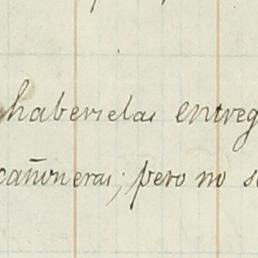 habérselas entreg
cañoneras; pero no s